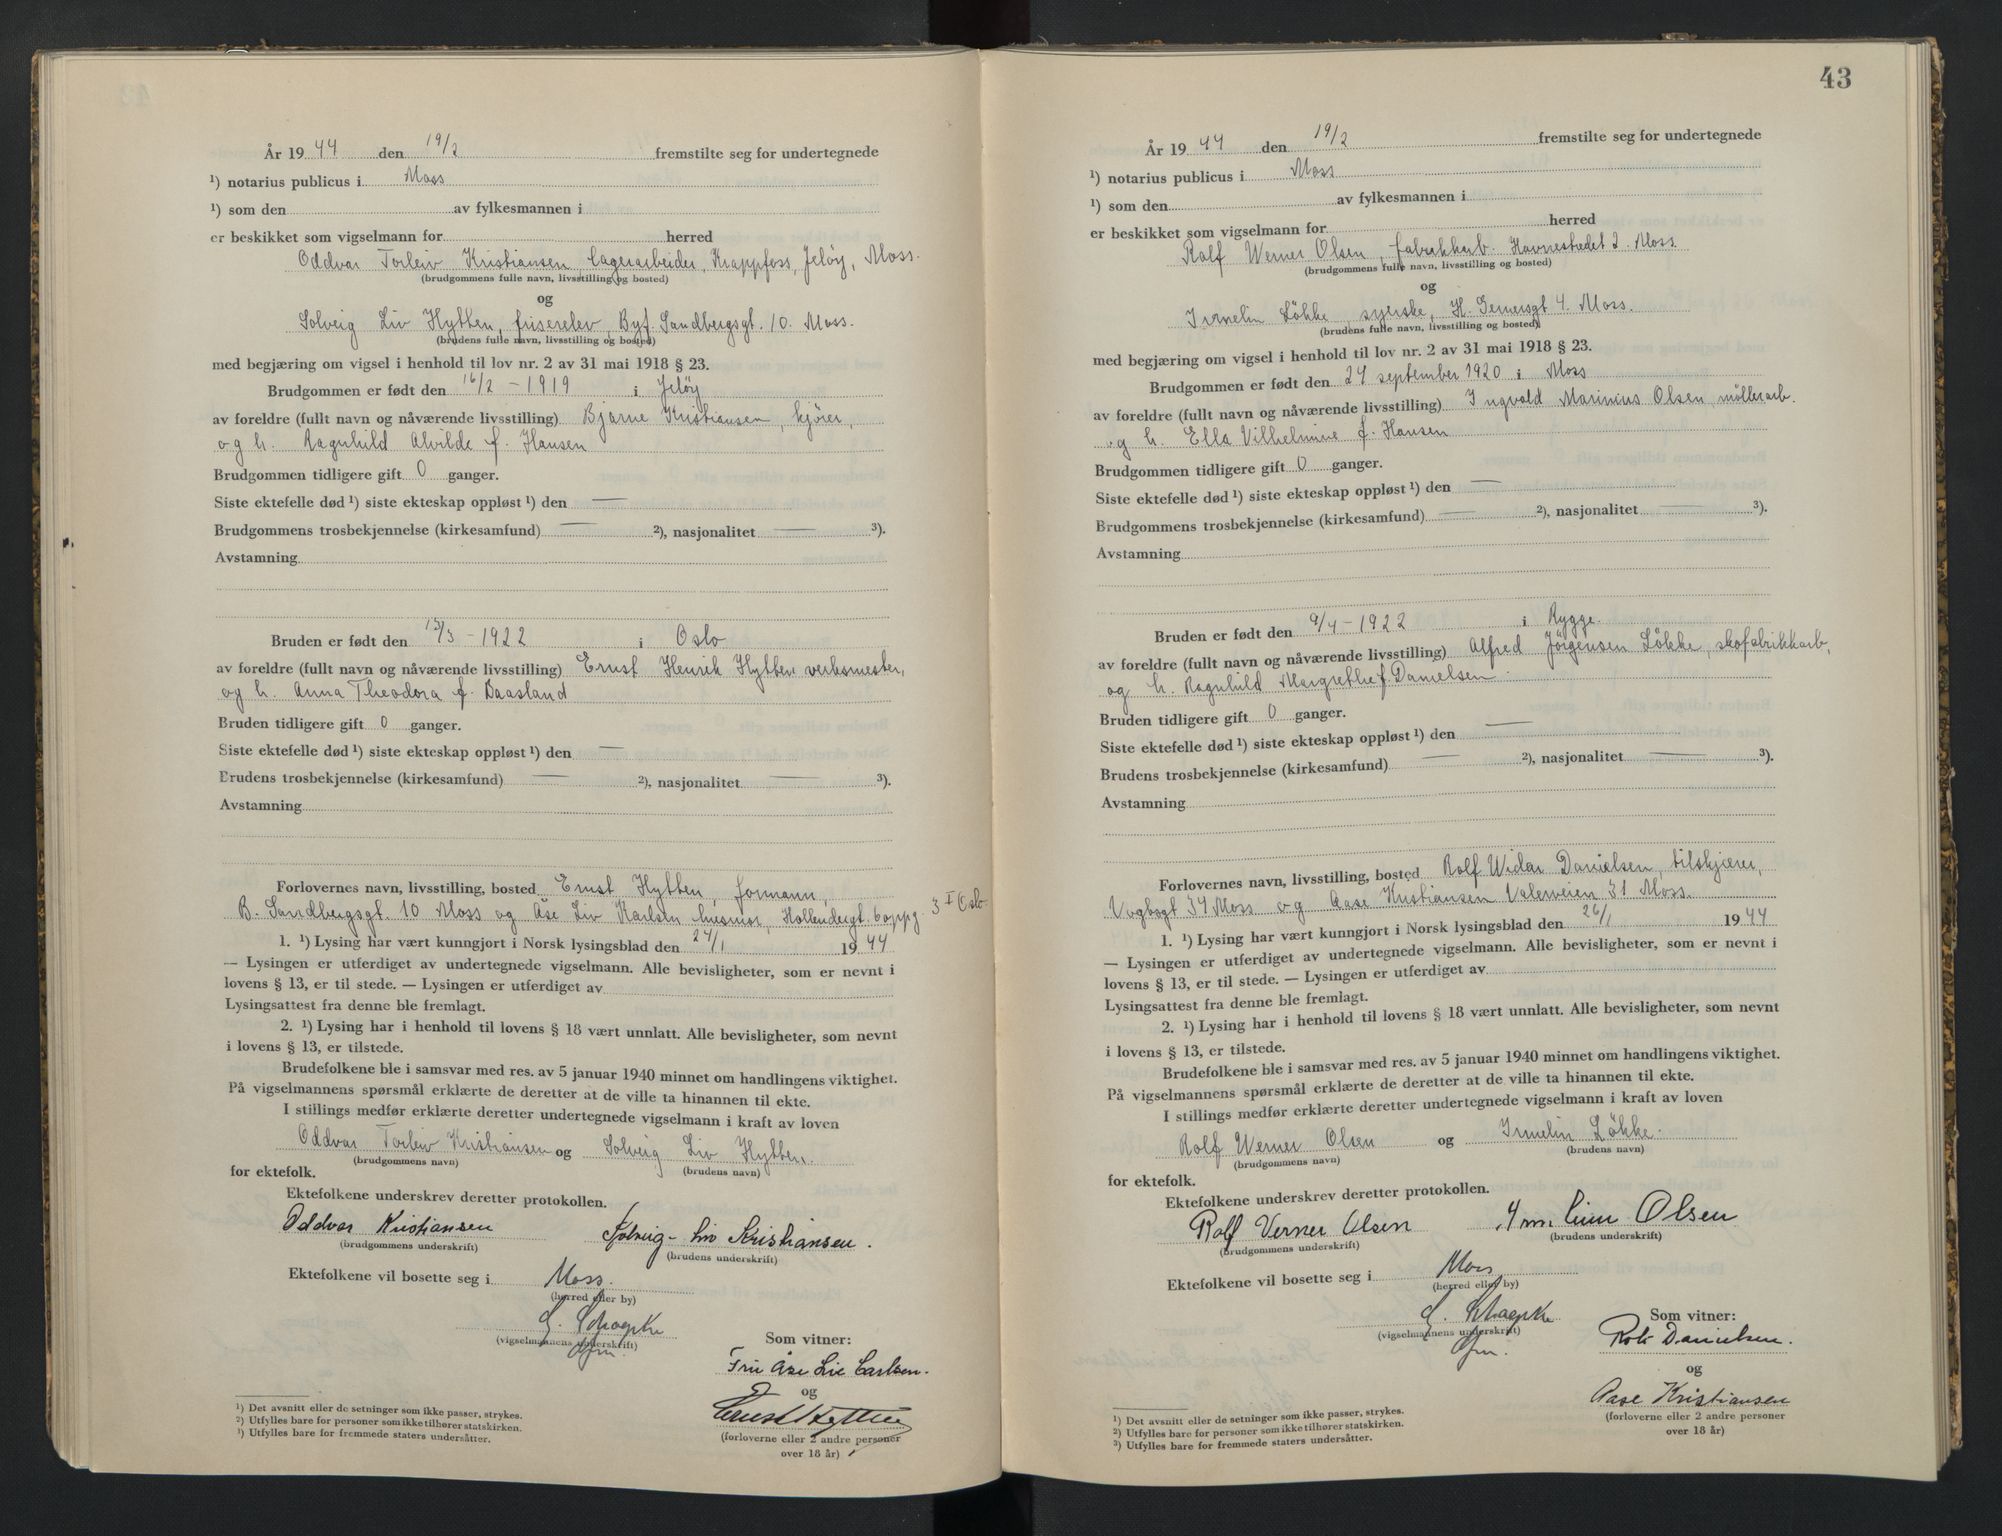 År 1944 den 19/2 fremstilte seg for undertegnede
¹) notarius publicus i Moss
¹) som den av fylkesmannen i
er beskikket som vigselmann for herred
Oddvar Torleiv Kristiansen, lagerarbeider, Krappfoss, Jeløy, Moss.
(brudgommens fulle navn, livsstilling og bosted)
og
Solveig Liv Hytten, friserelev, Byf. Sandbergsgt. 10. Moss.
(brudens fulle navn, livsstilling og bosted)
med begjæring om vigsel i henhold til lov nr. 2 av 31 mai 1918 § 23.
Brudgommen er født den 16/2 - 1919 i Jeløy
av foreldre (fullt navn og nåværende livsstilling) Bjarne Kristiansen, kjører,
og h. Ragnhild Alvilde f. Hansen
Brudgommen tidligere gift 0 ganger.
Siste ektefelle død ¹) siste ekteskap oppløst ¹) den —
Brudgommens trosbekjennelse (kirkesamfund) — ²), nasjonalitet — ³).
Avstamning
Bruden er født den /3 - 1922 i Oslo
av foreldre (fullt navn og nåværende livsstilling) Ernst Henrik Hytten verksmester,
og h. Anna Theodora f. Baasland
Bruden tidligere gift 0 ganger.
Siste ektefelle død ¹) siste ekteskap oppløst ¹) den —
Brudens trosbekjennelse (kirkesamfund) — ²), nasjonalitet — ³).
Avstamning
Forlovernes navn, livsstilling, bosted Ernst Hytten, formann,
B. Sandbergsgt. 10 Moss og Åse Liv Karlsen husmor, Hollendergt. 6 oppg. 3 I Oslo
1. ¹) Lysing har vært kunngjort i Norsk lysingsblad den 24/1 1944
— Lysingen er utferdiget av undertegnede vigselmann. Alle bevisligheter, som er nevnt i
lovens § 13, er til stede. — Lysingen er utferdiget av
Lysingsattest fra denne ble fremlagt.
2. ¹) Lysing har i henhold til lovens § 18 vært unnlatt. Alle bevisligheter, som nevnt
i lovens § 13, er tilstede.
Brudefolkene ble i samsvar med res. av 5 januar 1940 minnet om handlingens viktighet.
På vigselmannens spørsmål erklærte de deretter at de ville ta hinannen til ekte.
I stillings medfør erklærte deretter undertegnede vigselmann i kraft av loven
Oddvar Torleiv Kristiansen og Solveig Liv Hytten.
(brudgommens navn) (brudens navn)
for ektefolk.
Ektefolkene underskrev deretter protokollen.
Oddvar Kristiansen Solveig-Liv Kristiansen.
(brudgommens underskrift) (brudens underskrift)
Ektefolkene vil bosette seg i Moss.
(herred eller by)
(vigselmannens underskrift)
Som vitner:
Fru Åse Liv Carlsen.
og
Ernst Hytten
(forloverne eller 2 andre personer
over 18 år)
¹) Det avsnitt eller de setninger som ikke passer, strykes.
²) Utfylles bare for personer som ikke tilhører statskirken.
³) Utfylles bare for fremmede staters undersåtter.
43
År 1944 den 19/2 fremstilte seg for undertegnede
¹) notarius publicus i Moss
¹) som den av fylkesmannen i
er beskikket som vigselmann for herred
Rolf Werner Olsen, fabrikkarb. Havnestredet 2. Moss.
(brudgommens fulle navn, livsstilling og bosted)
og
Irmelin Løkke syerske, H. Gernersgt 4. Moss.
(brudens fulle navn, livsstilling og bosted)
med begjæring om vigsel i henhold til lov nr. 2 av 31 mai 1918 § 23.
Brudgommen er født den 24 september 1920 i Moss
av foreldre (fullt navn og nåværende livsstilling) Ingvald Marinius Olsen, møllerarb.
og h. Ella Vilhelmine f. Hansen
Brudgommen tidligere gift 0 ganger.
Siste ektefelle død ¹) siste ekteskap oppløst ¹) den —
Brudgommens trosbekjennelse (kirkesamfund) — ²), nasjonalitet — ³).
Avstamning
Bruden er født den 9/4 - 1922 i Rygge.
av foreldre (fullt navn og nåværende livsstilling) Alfred Jørgensen Løkke, skofabrikkarb,
og h. Ragnhild Margrethe f. Danielsen.
Bruden tidligere gift 0 ganger.
Siste ektefelle død ¹) siste ekteskap oppløst ¹) den —
Brudens trosbekjennelse (kirkesamfund) — ²), nasjonalitet — ³).
Avstamning
Forlovernes navn, livsstilling, bosted Rolf Widar Danielsen, tilskjærer,
Vogtsgt 34 Moss og Aase Kristiansen Vålerveien 31 Moss.
1. ¹) Lysing har vært kunngjort i Norsk lysingsblad den 26/1 1944
— Lysingen er utferdiget av undertegnede vigselmann. Alle bevisligheter, som er nevnt i
lovens § 13, er til stede. — Lysingen er utferdiget av
Lysingsattest fra denne ble fremlagt.
2. ¹) Lysing har i henhold til lovens § 18 vært unnlatt. Alle bevisligheter, som nevnt
i lovens § 13, er tilstede.
Brudefolkene ble i samsvar med res. av 5 januar 1940 minnet om handlingens viktighet.
På vigselmannens spørsmål erklærte de deretter at de ville ta hinannen til ekte.
I stillings medfør erklærte deretter undertegnede vigselmann i kraft av loven
Rolf Werner Olsen og Irmelin Løkke.
(brudgommens navn) (brudens navn)
for ektefolk.
Ektefolkene underskrev deretter protokollen.
Rolf Verner Olsen Irmelinn Olsen
(brudgommens underskrift) (brudens underskrift)
Ektefolkene vil bosette seg i Moss
(herred eller by)
(vigselmannens underskrift)
Som vitner:
Rolf Danielsen.
og
Aase Kristiansen
(forloverne eller 2 andre personer
over 18 år)
¹) Det avsnitt eller de setninger som ikke passer, strykes.
²) Utfylles bare for personer som ikke tilhører statskirken.
³) Utfylles bare for fremmede staters undersåtter.